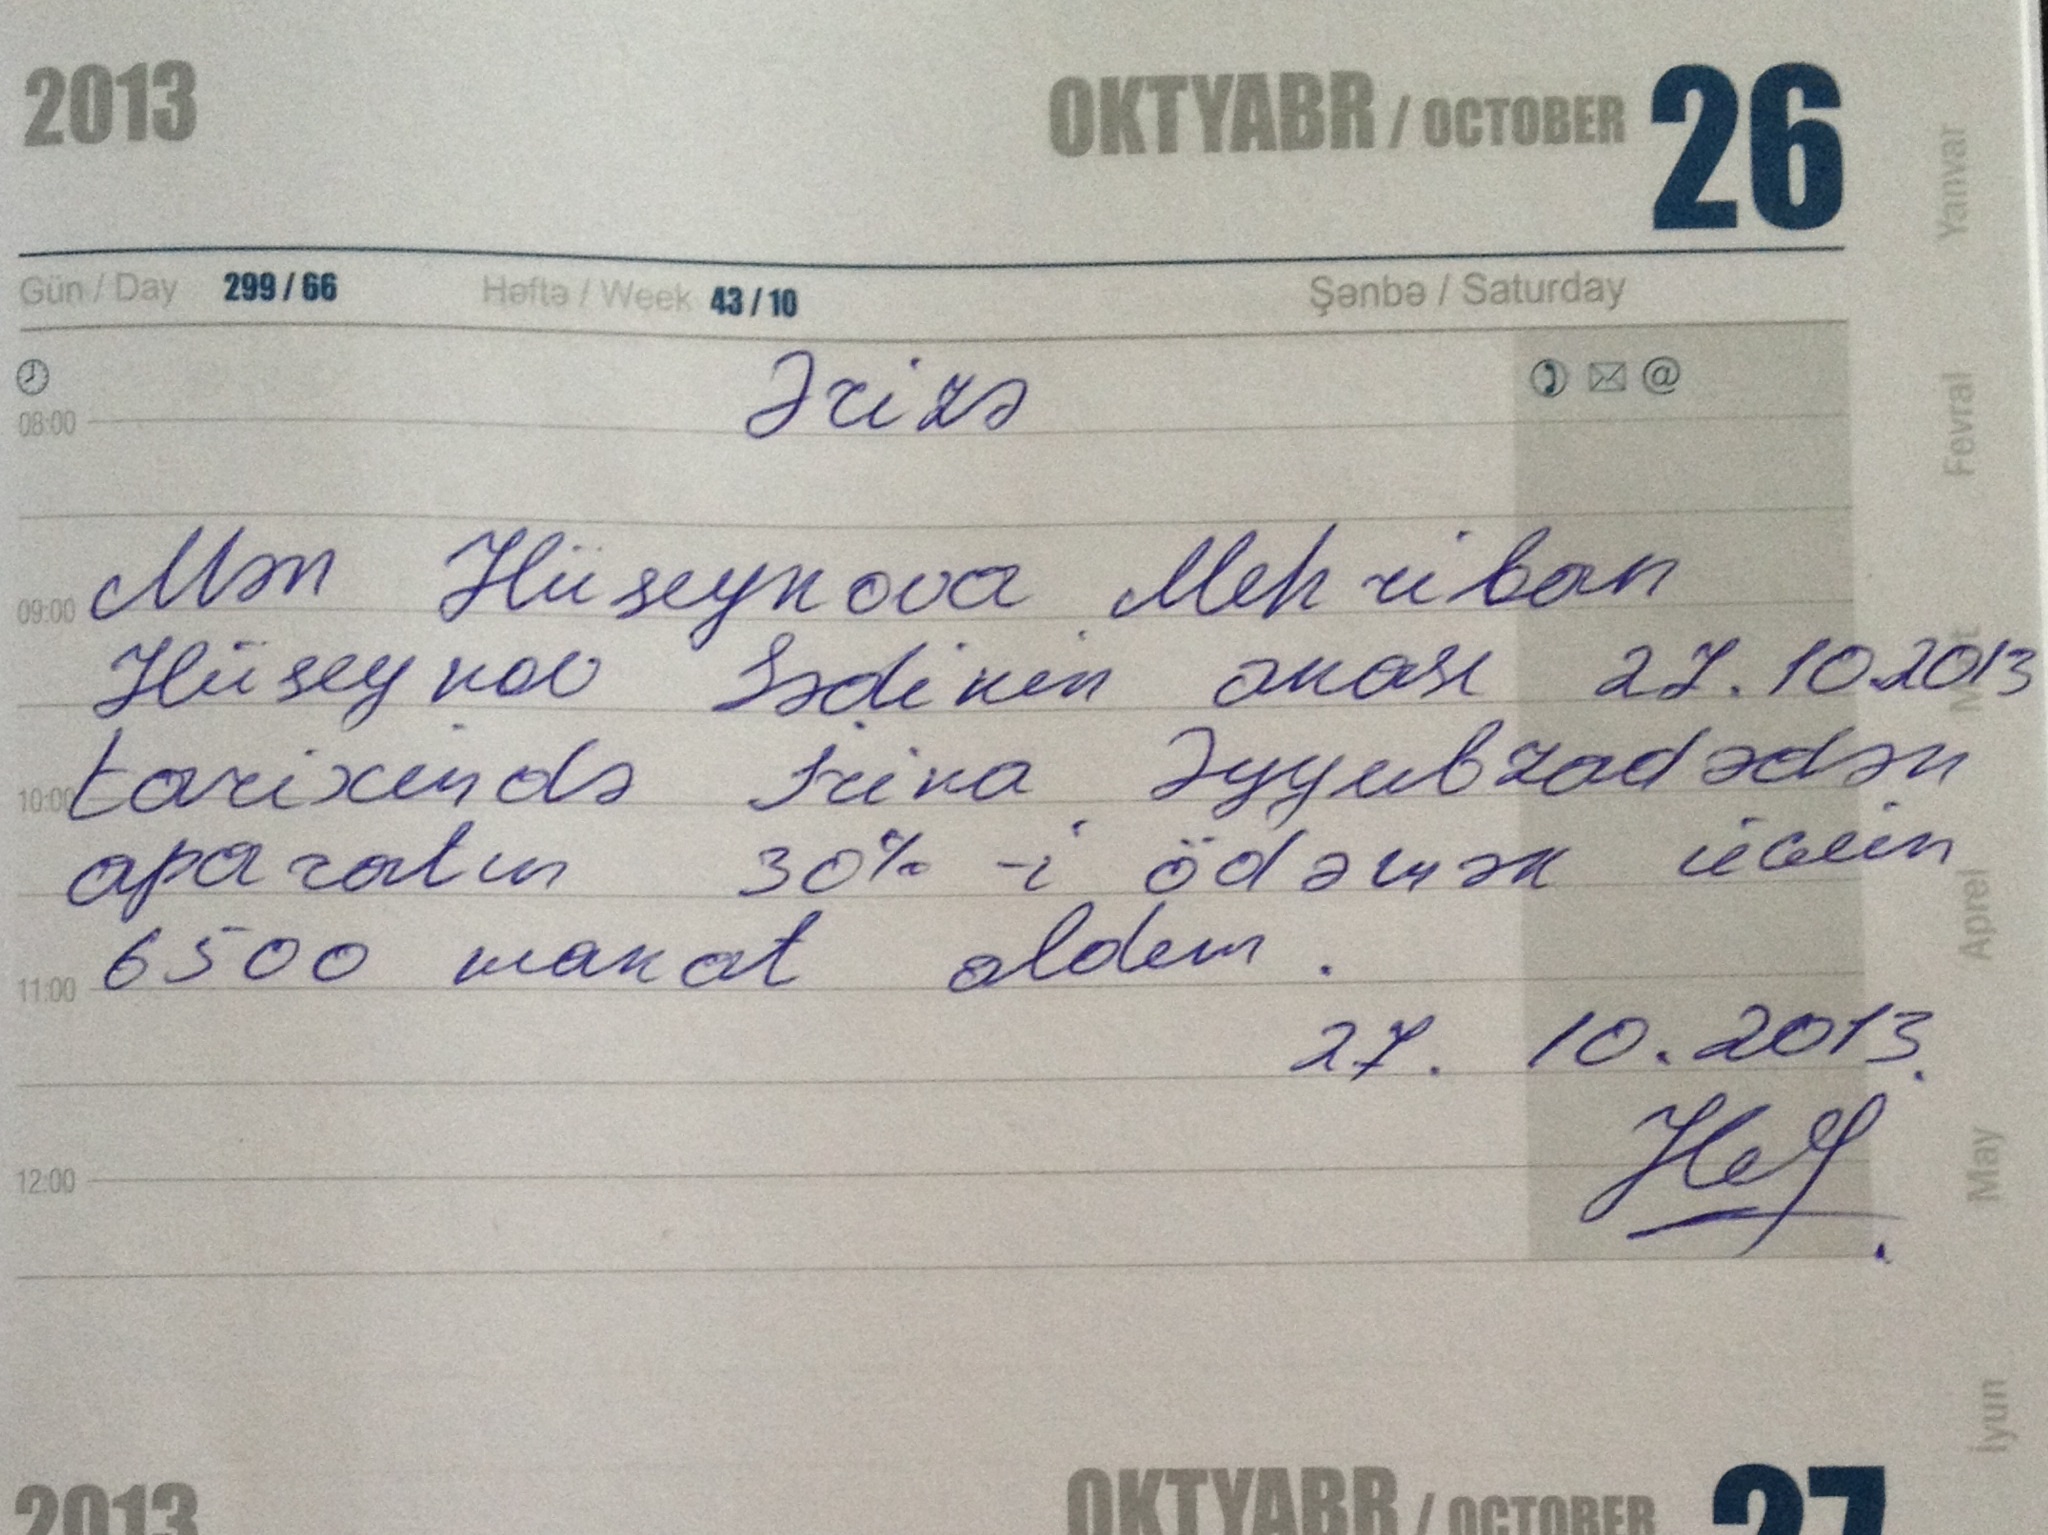 2013 OKTYABR / OCTOBER 26
Gün / Day 299 / 66 Həftə / Week 43 / 10 Şənbə / Saturday
Ərizə
08:00
Mən Hüseynova Mehriban
09:00
Hüseynov Sədinin anası 27.10.2013
tarixində İrina Əyyubzadədən
10:00
aparatın 30% -i ödəmək üçün
6500 manat aldım.
11:00
27. 10. 2013.
12:00
Yanvar
Fevral
Mart
Aprel
May
İyun
2013 OKTYABR / OCTOBER 27